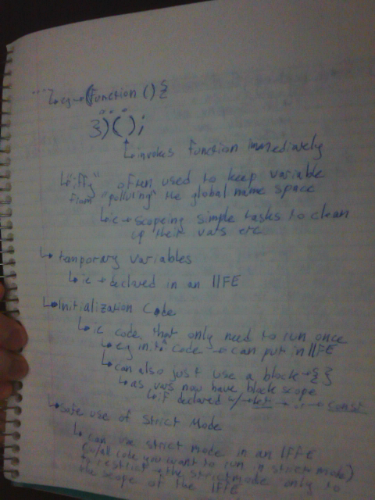 ...? ↳ eg → (function () {
...
})();
↳ invokes function immediately
↳ "iffy" often used to keep variable
from "polluting" the global name space
↳ ie → scopeing simple tasks to clean
up their vars etc
↳ temporary variables
↳ ie → declared in an IIFE
↳ Initialization Code
↳ ie code that only need to run once
↳ eg init code → can put in IIFE
↳ can also just use a block → { }
↳ as vars now have block scope
↳ if declared w/ → let → or → const
↳ safe use of Strict Mode
↳ can use strict mode in an IFFE
(w/ all code you want to run in strict mode)
↳ restricting the strict mode only to
the scope of the IFFE